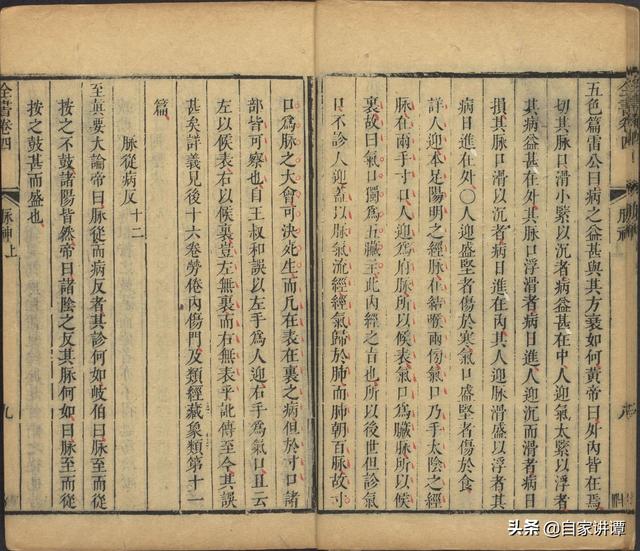 五色篇雷公曰病之益甚與其方衰如何黃帝曰外內皆在焉
切其脉口滑小緊以沉者病益甚在中人迎氣大緊以浮者
其病益甚在外其脉口浮滑者病日進人迎沉而滑者病日
損其脉口滑以沉者病日進在內其人迎脉滑盛以浮者其
病日進在外○人迎盛堅者傷於寒氣口盛堅者傷於食
詳人迎本足陽明之經脉在結喉兩傍氣口乃手太陰之經
脉在兩手寸口人迎為府脉所以候表氣口為臟脉所以候
裏故曰氣口獨為五臟主此內經之旨也所以後世但診氣
口不診人迎蓋以脉氣流經經氣歸於肺而肺朝百脉故寸
口為脉之大會可決死生而凡在表在裏之病但於寸口諸
部皆可察也自王叔和誤以左手為人迎右手為氣口且云
左以候表右以候裏豈左無裏而右無表乎訛傳至今其誤
甚矣詳義見後十六卷勞倦內傷門及類經藏象類第十一
篇
脉從病反十二
至眞要大論帝曰脉從而病反者其診何如岐伯曰脉至而從
按之不鼓諸陽皆然帝曰諸陰之反其脉何如曰脉至而從
按之鼓甚而盛也
全書卷四
脉神上
九
头条 @自家讲谭